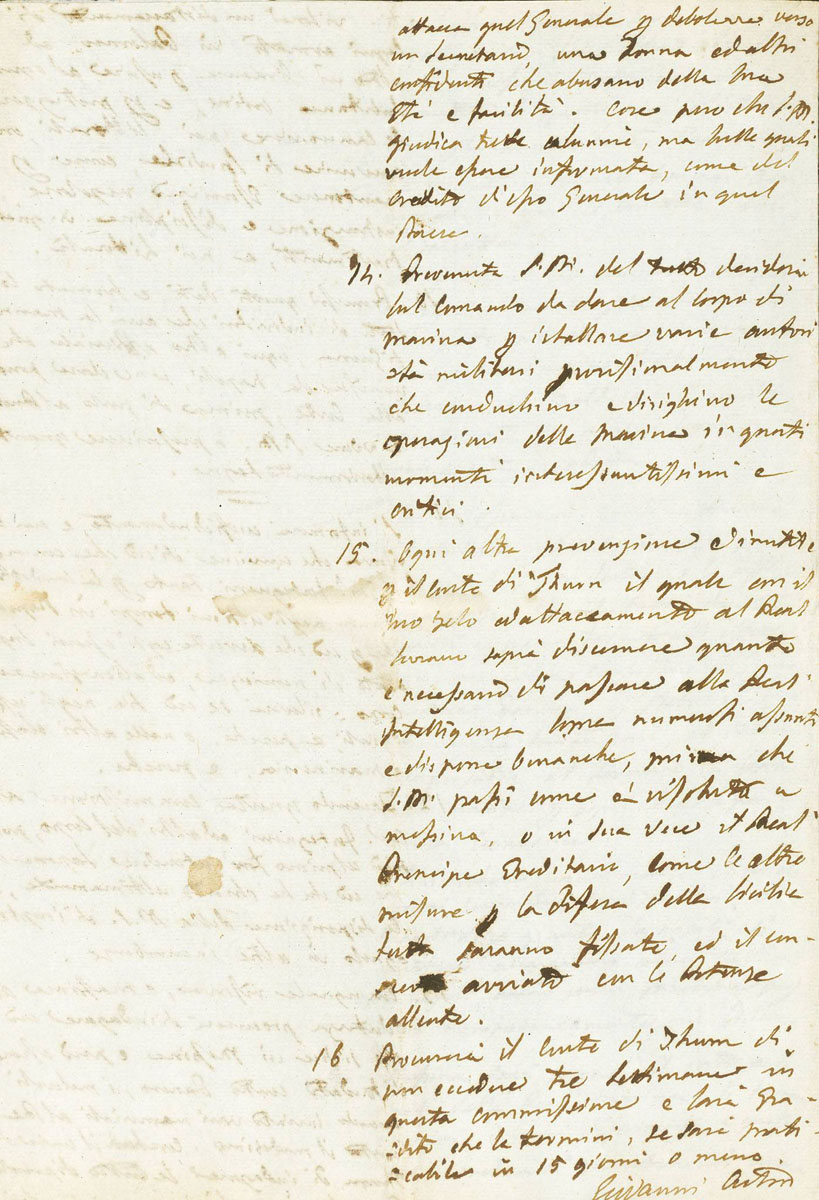 attacca quel Generale p debolezze verso
un Secretario, una donna ed altri
confidenti che abusano della sua
Età e facilità. Cose pero che S.M.
giudica tutte calunnie, ma sulle quali
vuole essere informata, come del
credito d'esso Generale in quel
Paese.
14. Prevenuta S.M. del tutto deciderà
sul Comando da dare al Corpo di
marina p istallare varie autori
età militari provisionalmente
che conduchino e dirighino le
operazioni della Marina in questi
momenti interessantissimi e
critici.
15. Ogni altra prevenzione è inutile
p il Conte di Thurn il quale con il
suo zelo ed attaccamento al Real
Servizio saprà discernere quanto
è necessario di passare alla Real
Intelligenza sopra numenti assunti
e disporre benanche, prima che
S.M. passi come è risoluta a
Messina, o in sua vece il Real
Principe Ereditario, come le altre
misure p la difesa della Sicilia
tutta saranno fissate, ed il con-
avviato con le Potenze
alleate.
16 Procurerà il Conte di Thurn di
non eccedere tre settimane in
questa commissione e sarà gra-
dito che la termini, se sarà prati-
cabile in 15 giorni o meno.
Giovanni Acton